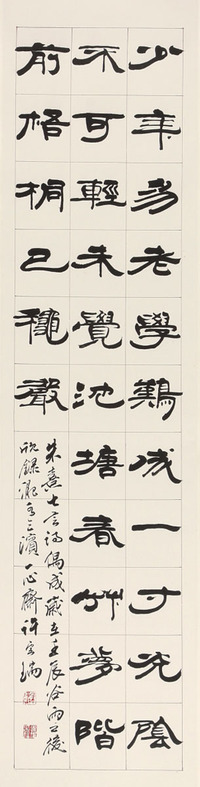 少年易老學難成一寸光陰
不可輕未覺池塘春艸夢階
前梧桐已龝聲
朱熹七言詩偶成歲在壬辰谷雨之後
之濱一心齋許